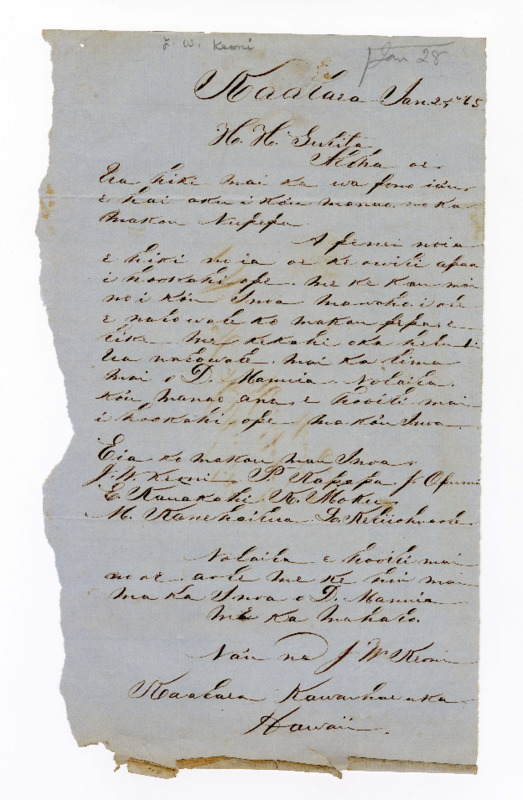 J. W. Keoni
Jan 28
Kaalaea Jan. 28th 65
H. H. Gulika
Aloha oe.
Ua hiki mai ka wa pono ia'u
e hai aku i ko'u manao, no ka
makou Nupepa.
A penei no ia
e hiki no ia oe ke owili apaa
i hookahi ope. me ke kau mai
no i ko'u Inoa mawaho, i ole
e nalowale ko makou pepa, e
like me kekahi oka helu 1
Ua nalowale mai ka lima
mai o D. Manuia. Nolaila.
ko'u manao ana, e hooili mai
i hookahi ope ma ko'u Inoa.
Eia ko makou mau Inoa.
J. W. Keoni P. Kapepa J. Opunui
E. Kanakahi K. Moku
M. Kanehailua
Nolaila e hooili mai
no oe. aole me ke hiu ma
ma ka Inoa o D. Manuia
me ka mahalo.
Na'u na J W Keoni
Kaalaea
Hawaii.